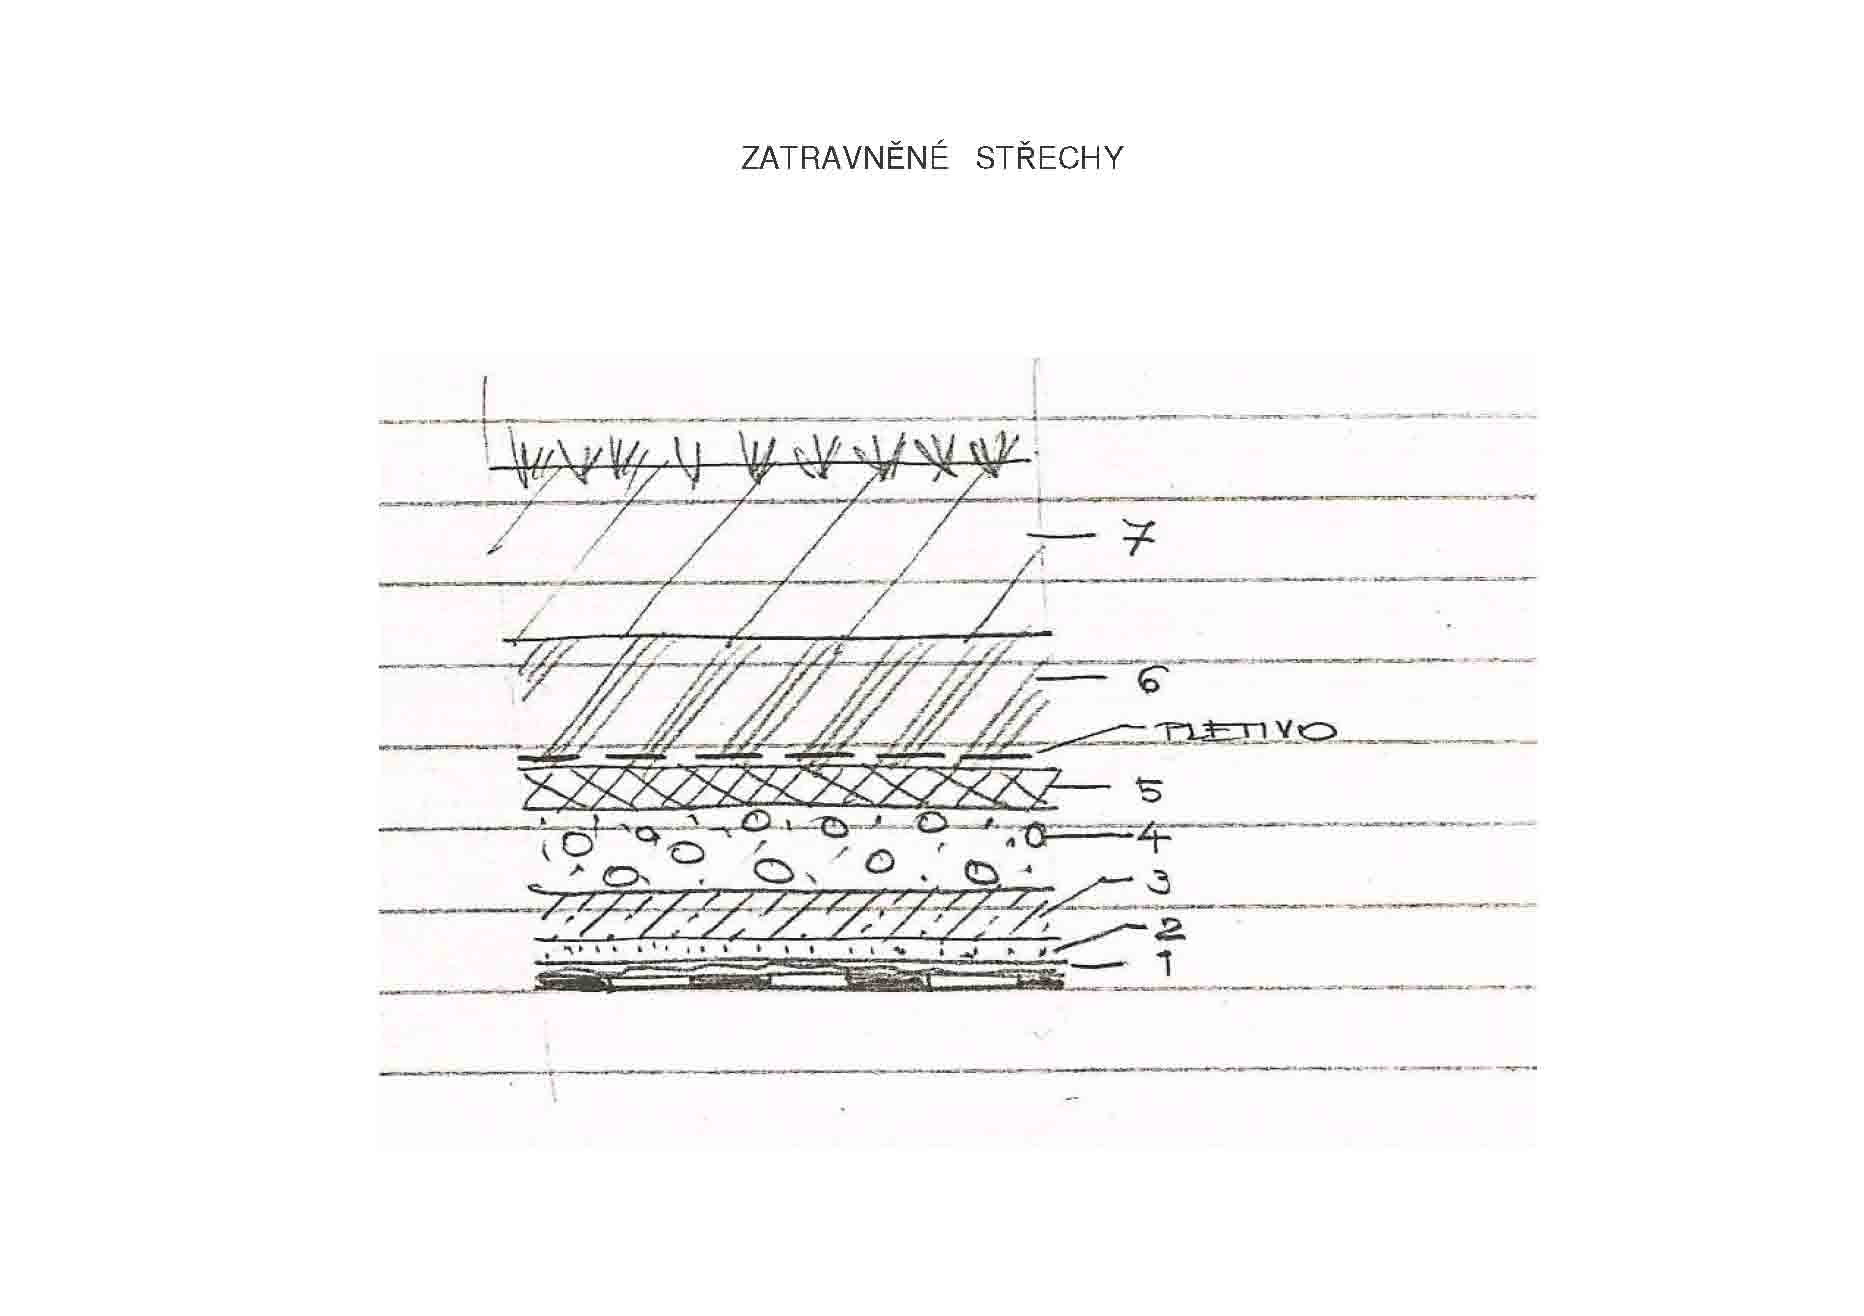 ZATRAVNĚNÉ STŘECHY
7
6
PLETIVO
5
4
3
2
1